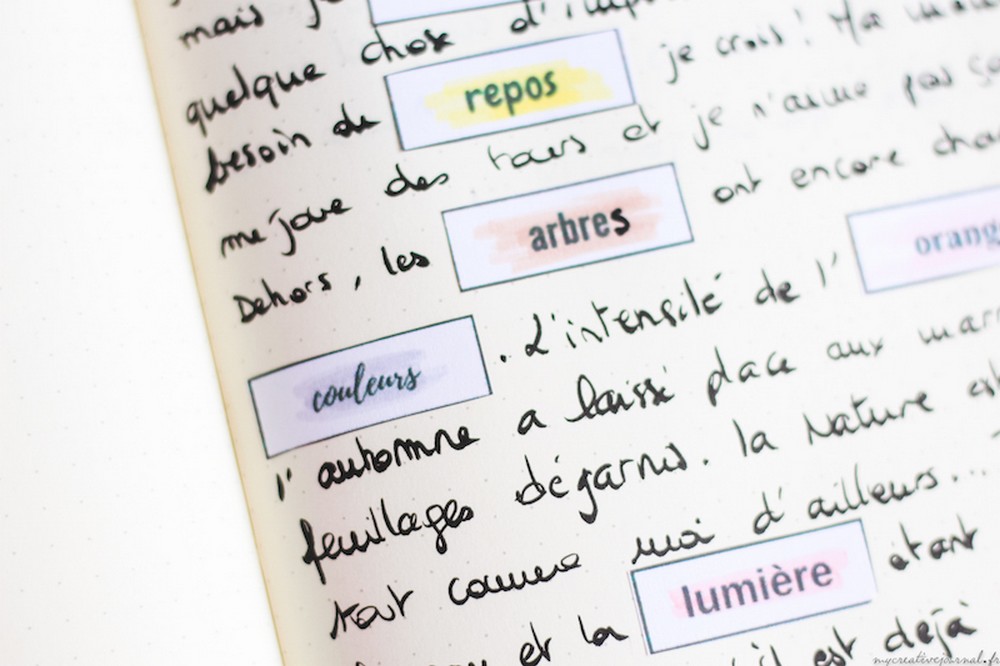 mais je
quelque chose d'imp
besoin de repos je crois ! Ma
me joue des tours et je n'aime pas
Dehors, les arbres ont encore
couleurs . L'intensité de l' orang
l'automne a laissé place aux marr
feuillages dégarnis. la Nature
tout comme moi d'ailleurs...
et la lumière étant
il est déjà
mycreativejournal.fr